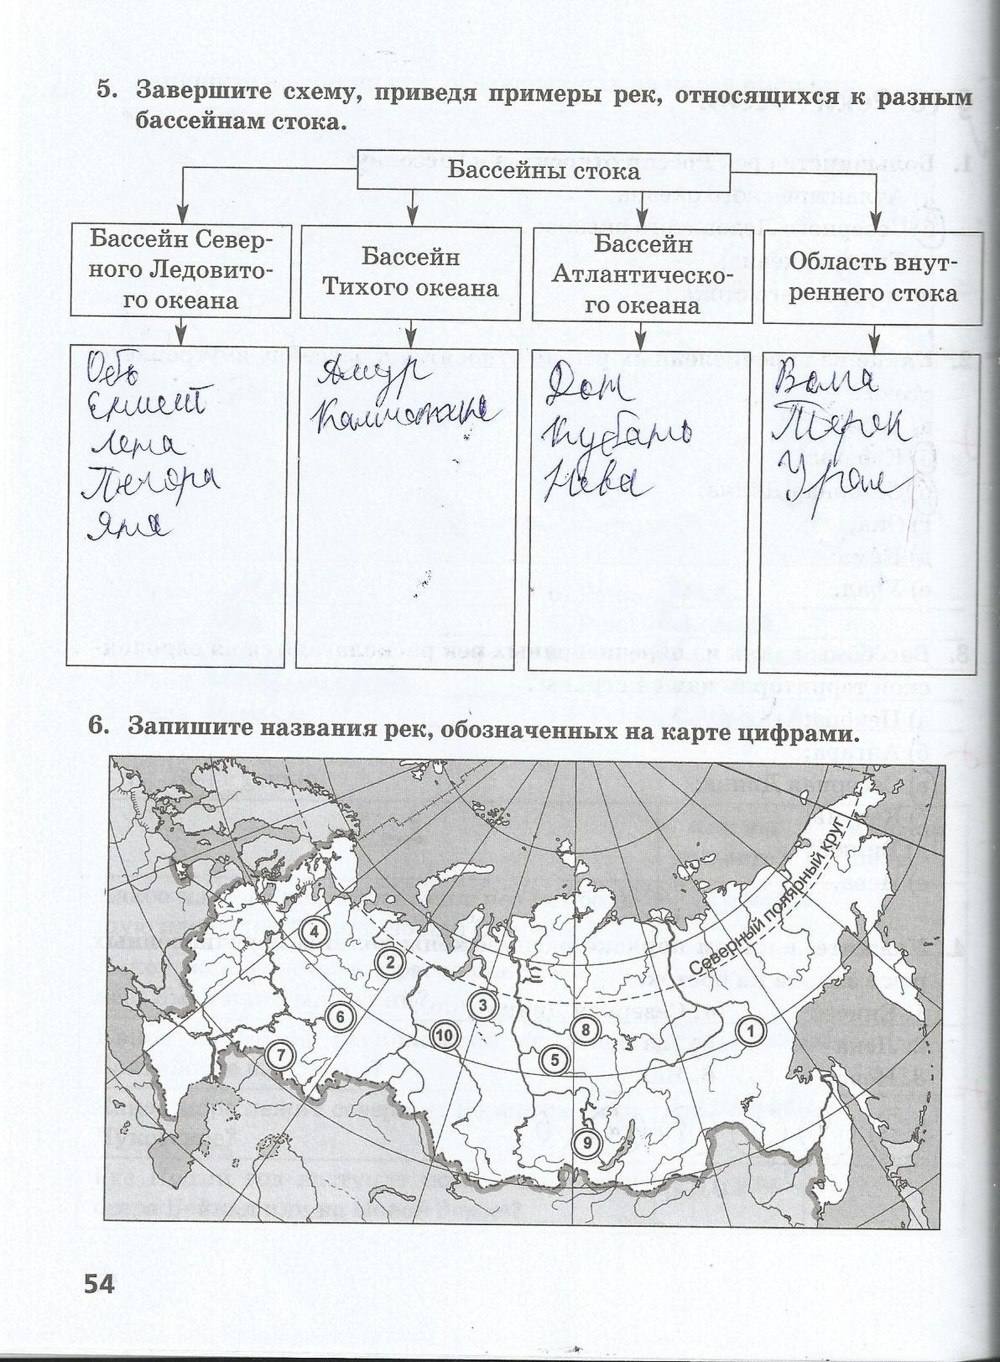 5. Завершите схему, приведя примеры рек, относящихся к разным
бассейнам стока.
Бассейны стока
Бассейн Север-
ного Ледовито-
го океана
Бассейн
Тихого океана
Бассейн
Атлантическо-
го океана
Область внут-
реннего стока
Обь
Енисей
Лена
Печора
Яна
Амур
Камчатка
Дон
Кубань
Нева
Волга
Терек
Урал
6. Запишите названия рек, обозначенных на карте цифрами.
Северный полярный круг
4
2
3
6
10
8
1
7
5
9
54